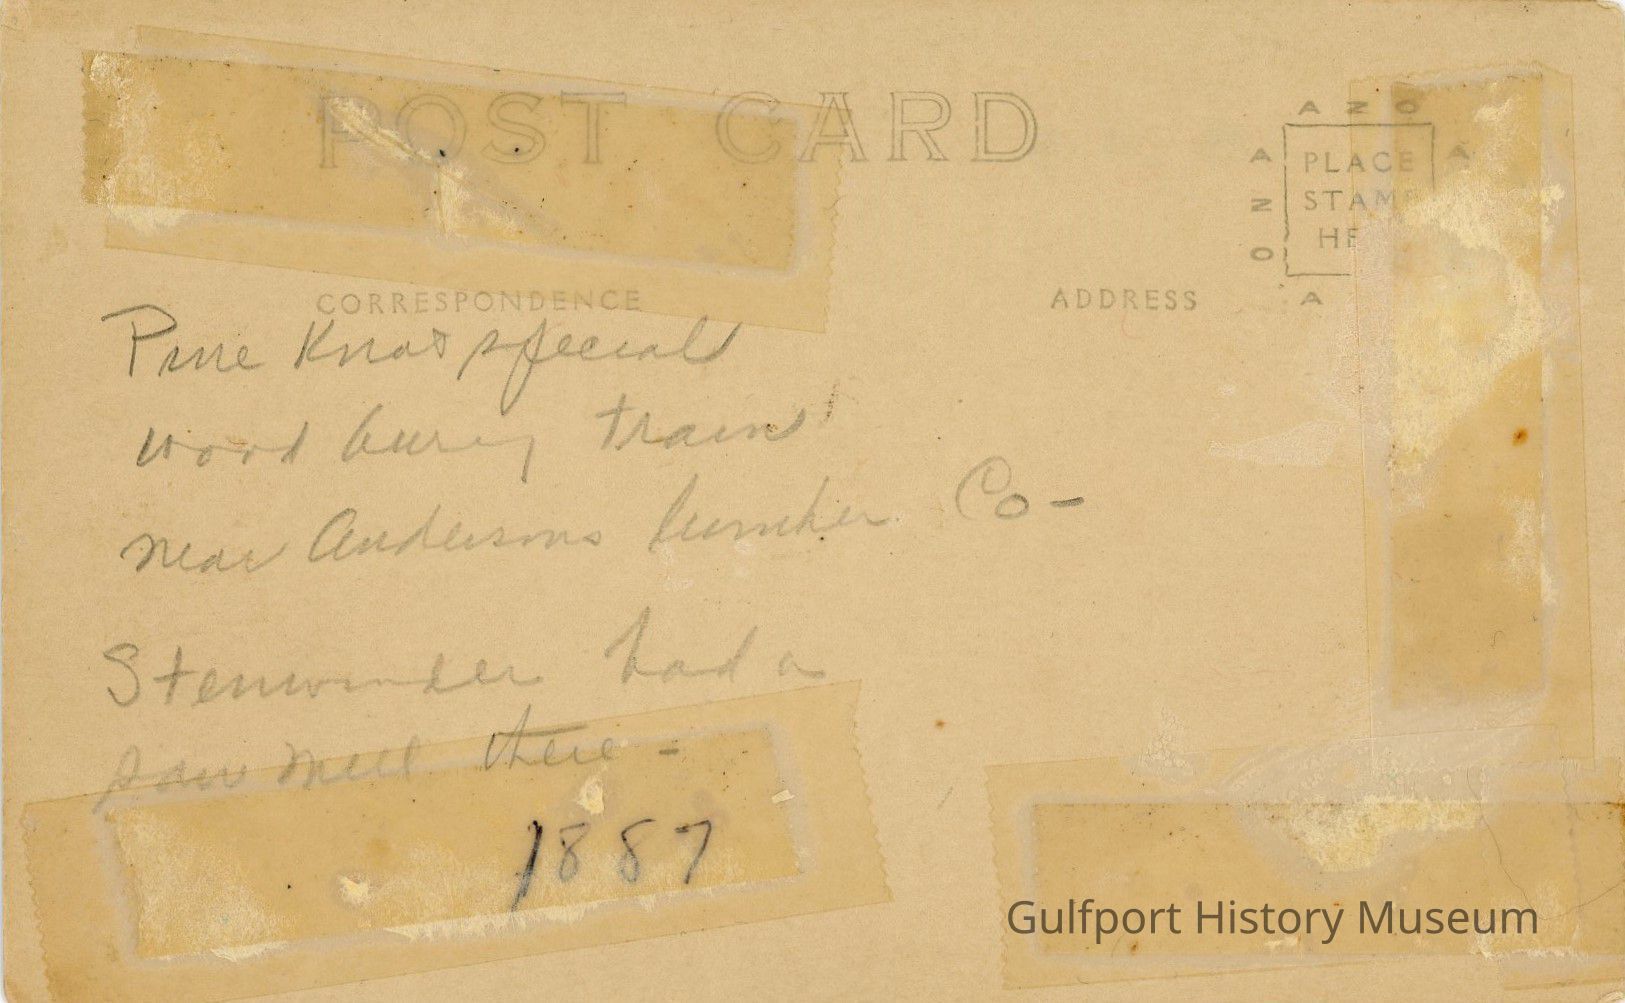 POST CARD
AZO
A A
PLACE
STAMP
HE
N
O
A
CORRESPONDENCE
ADDRESS
Pine Knot special
wood buring train
near Andersons lumber Co -
Stenwinder had a
saw mill there -
1887
Gulfport History Museum